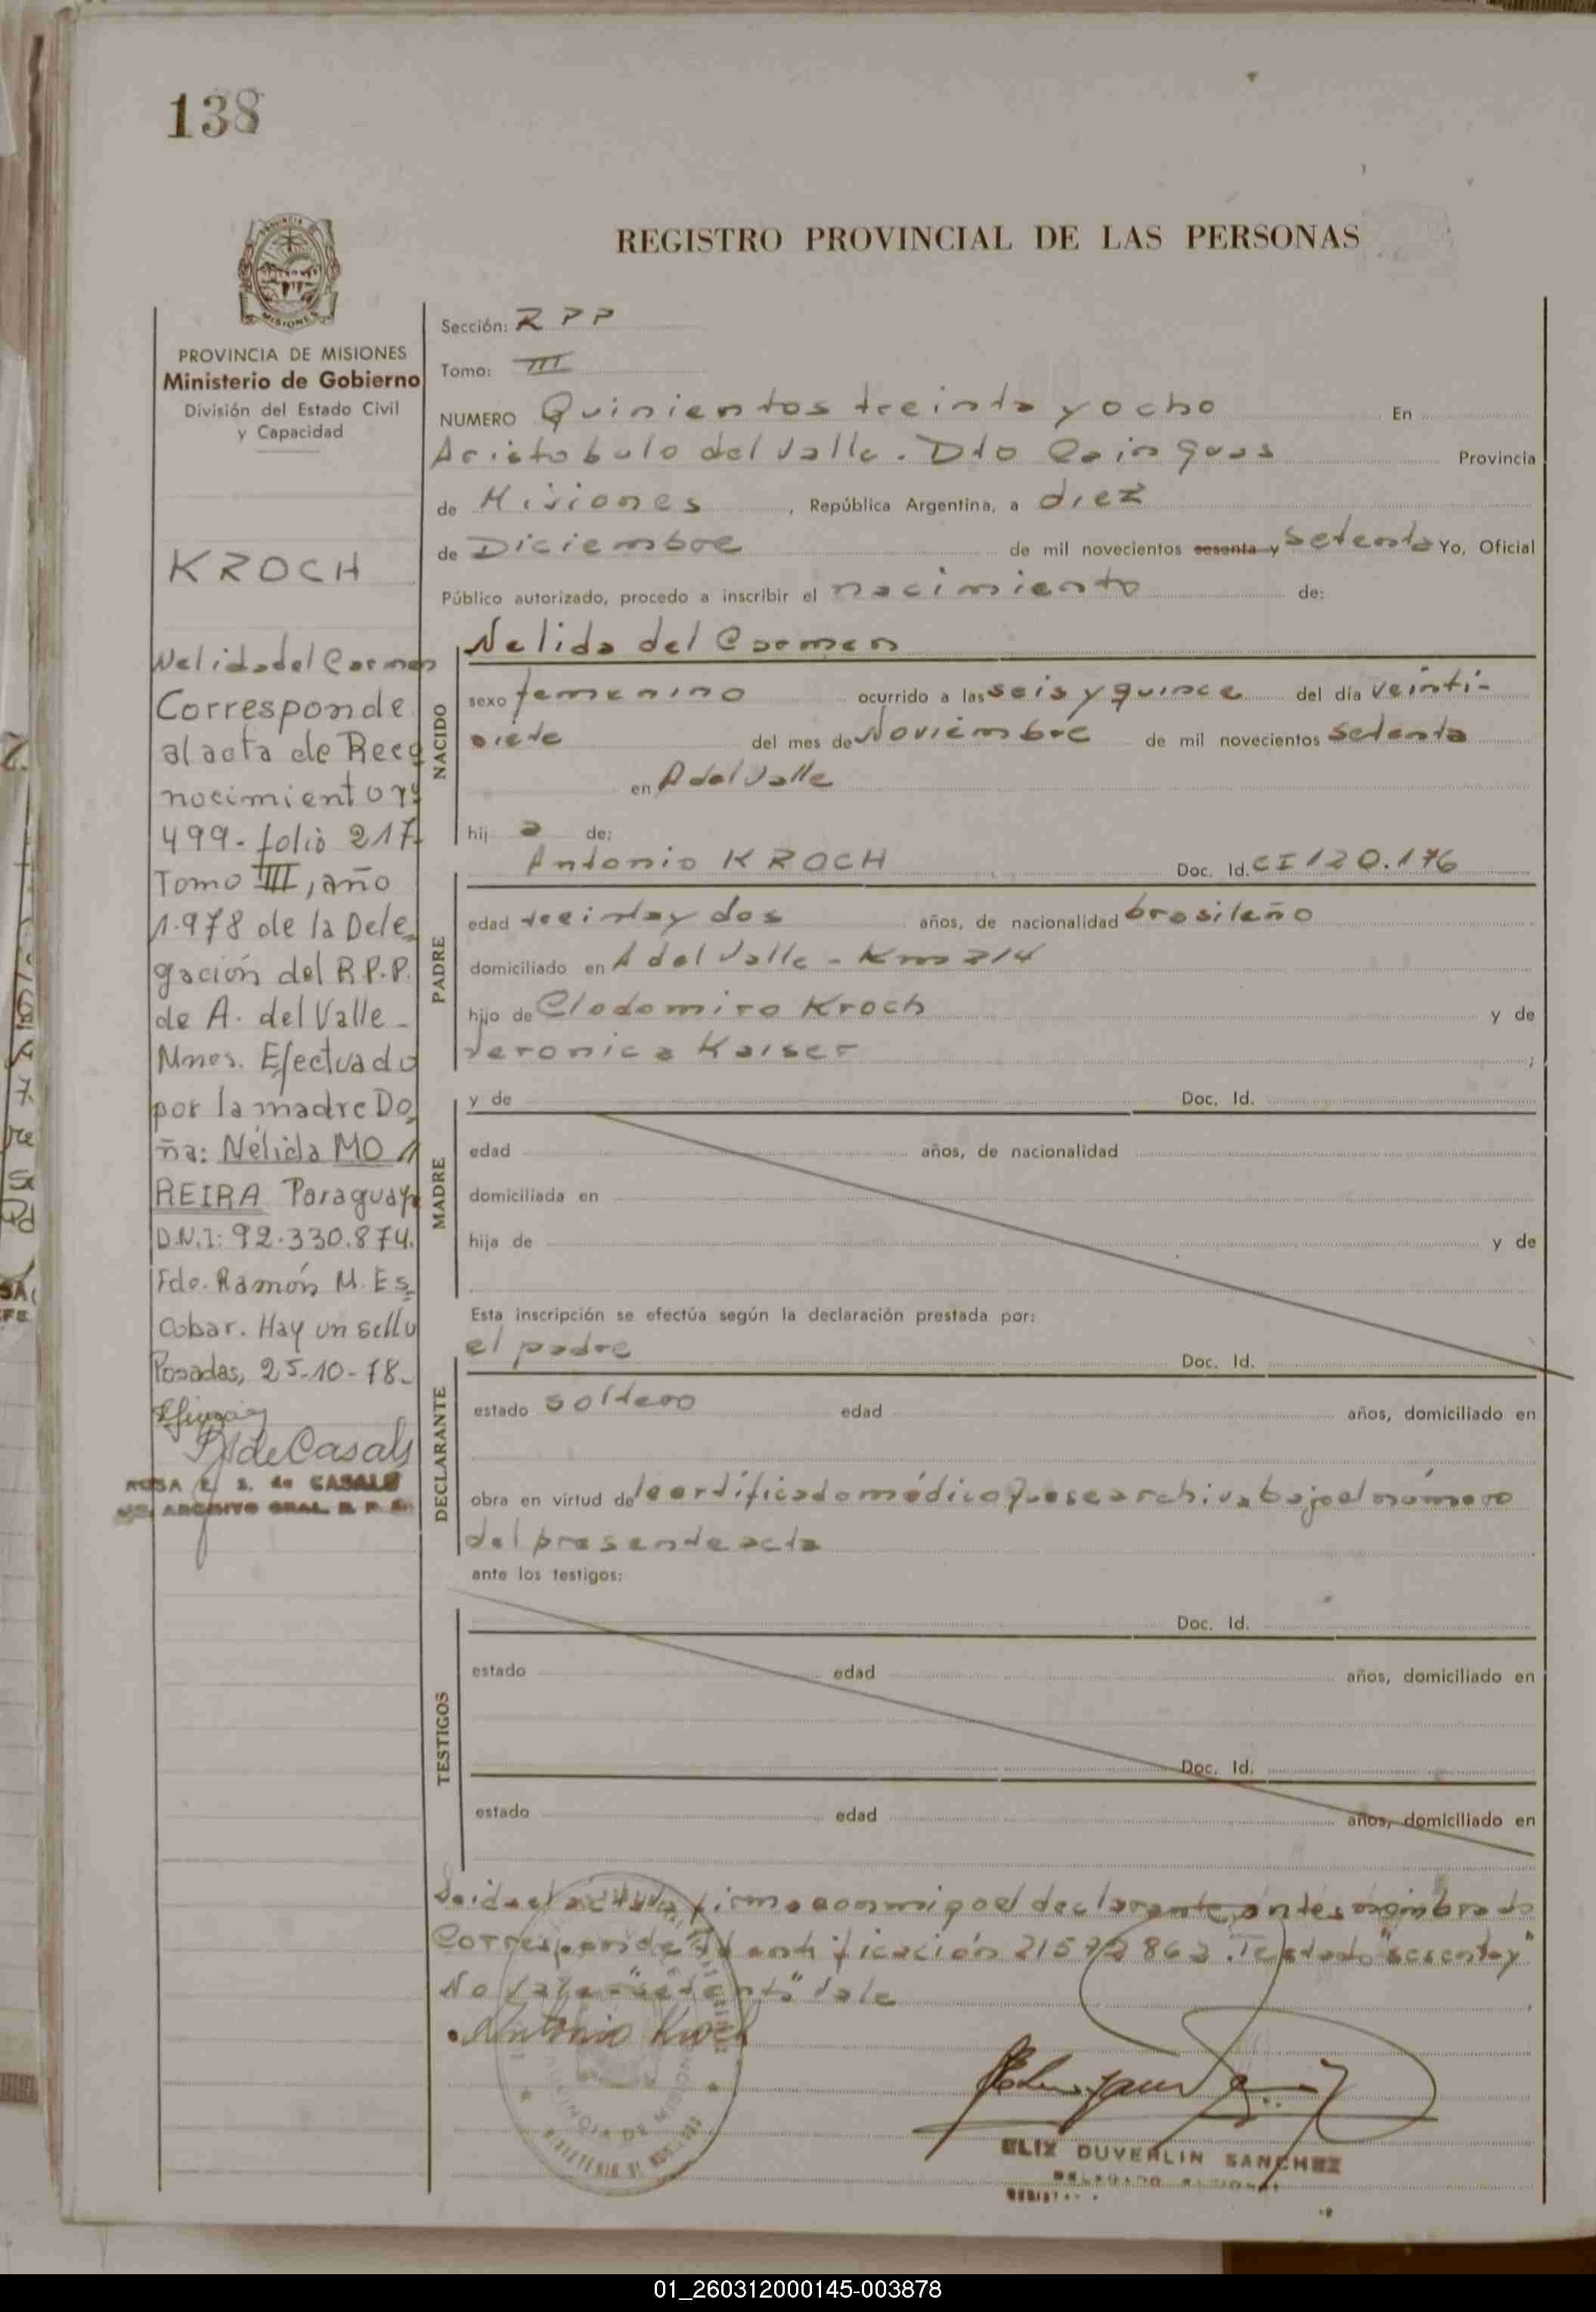 138
REGISTRO PROVINCIAL DE LAS PERSONAS
MISIONES
PROVINCIA DE MISIONES
Ministerio de Gobierno
División del Estado Civil
y Capacidad
KROCH
Nelida del Carmen
Corresponde
al acta de Reco
nocimiento nº
499- folio 217-
Tomo III, año
1.978 de la Dele
gación del R.P.P.
de A. del Valle -
Mnes. Efectuado
por la madre Do
ña: Nélida MO
REIRA Paraguay
D.N.I: 92.330.874.
Fdo. Ramón M. Es
cobar. Hay un sello
Posadas, 25-10-78.-
de Casals
ROSA E. S. de CASALS
ARCHIVO GRAL R P
Sección: R P P
Tomo: III
NUMERO Quinientos treinta y ocho En
Aristobulo del Valle. Dto Cainguas Provincia
de Misiones, República Argentina, a diez
de Diciembre de mil novecientos sesenta y Setenta Yo, Oficial
Público autorizado, procedo a inscribir el nacimiento de:
NACIDO
Nelida del Carmen
sexo femenino ocurrido a las seis y quince del día veinti-
siete del mes de Noviembre de mil novecientos setenta
en A del Valle
hij a de:
PADRE
Antonio KROCH Doc. Id. CI 120.176
edad treinta y dos años, de nacionalidad brasileño
domiciliado en A del Valle - Km 214
hijo de Clodomiro Kroch y de
Veronica Kaiser ;
MADRE
y de Doc. Id.
edad años, de nacionalidad
domiciliada en
hija de y de
Esta inscripción se efectúa según la declaración prestada por:
DECLARANTE
el padre Doc. Id.
estado soltero edad años, domiciliado en
obra en virtud del certificado médico que se archiva bajo el número
del presente acta
ante los testigos:
TESTIGOS
Doc. Id.
estado edad años, domiciliado en
Doc. Id.
estado edad años, domiciliado en
Leida el acta firma conmigo el declarante antes nombrado
Corresponde Identificación 21572862. Testado "sesenta y"
No vale "setenta" Vale
Antonio Kroch
PROVINCIA DE MISIONES
MINISTERIO
ELIX DUVERLIN SANCHEZ
DELEGADO
01_260312000145-003878